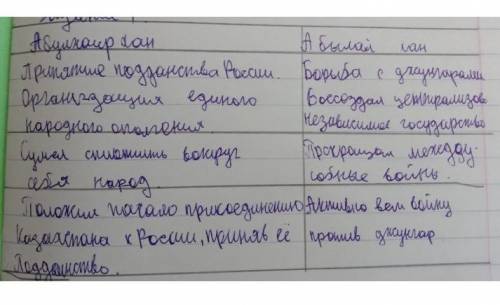 Абулхаир хан | Абылай хан
Принятие подданства России. | Борьба с джунгарами
Организация единого | Воссоздал централизов
народного ополчения. | Независимое государство
Сумел сплотить вокруг | Прекращал междоу-
себя народ. | собные войны.
Положил начало присоединению | Активно вел войну
Казахстана к России, приняв её | против джунгар
Подданство.